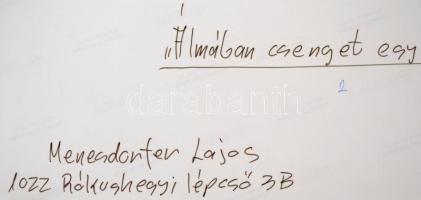 „Álmában csenget egy
2
darabanth
Menesdorfer Lajos
1022 Rókushegyi lépcső 3B